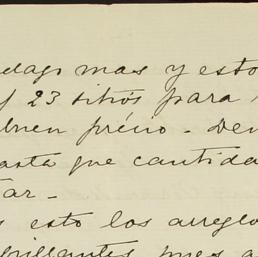 dago mas y esto
y 23 sitios para
buen précio - Den
asta que cantida
tar -
s esto los arreglo
brillantes pues a